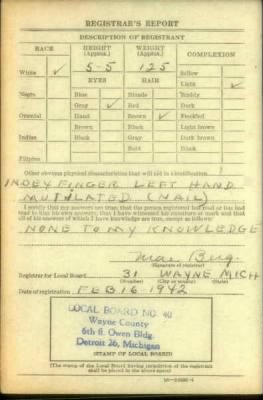 REGISTRAR'S REPORT
DESCRIPTION OF REGISTRANT
RACE HEIGHT (Approx.) WEIGHT (Approx.) COMPLEXION
White ✓ 5-5 125 Sallow
EYES HAIR Light ✓
Negro Blue Blonde Ruddy
Gray ✓ Red Dark
Oriental Hazel Brown ✓ Freckled
Brown Black Light brown
Indian Black Gray Dark brown
Bald Black
Filipino
Other obvious physical characteristics that will aid in identification
INDEX FINGER LEFT HAND
MUTILATED (NAIL)
I certify that my answers are true; that the person registered has read or has had
read to him his own answers; that I have witnessed his signature or mark and that
all of his answers of which I have knowledge are true, except as follows:
NONE TO MY KNOWLEDGE
(Signature of registrar)
Registrar for Local Board 31 WAYNE MICH
(Number) (City or county) (State)
Date of registration FEB 16 1942
LOCAL BOARD NO. 40
Wayne County
6th fl. Owen Bldg.
Detroit 26, Michigan
(STAMP OF LOCAL BOARD)
(The stamp of the Local Board having jurisdiction of the registrant
shall be placed in the above space.)